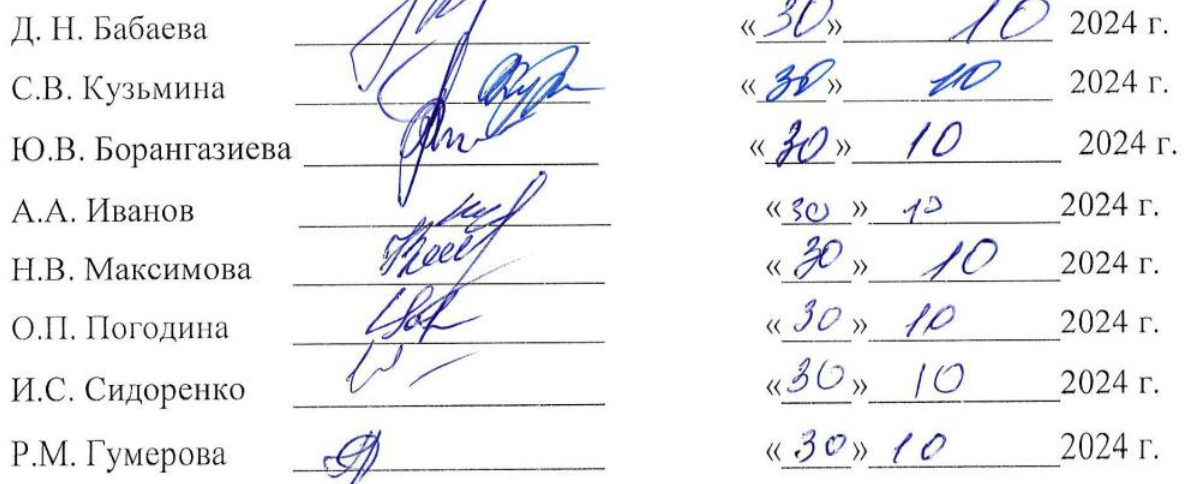 Д. Н. Бабаева «30» 10 2024 г.
С.В. Кузьмина «30» 10 2024 г.
Ю.В. Борангазиева «30» 10 2024 г.
А.А. Иванов «30» 10 2024 г.
Н.В. Максимова «30» 10 2024 г.
О.П. Погодина «30» 10 2024 г.
И.С. Сидоренко «30» 10 2024 г.
Р.М. Гумерова «30» 10 2024 г.